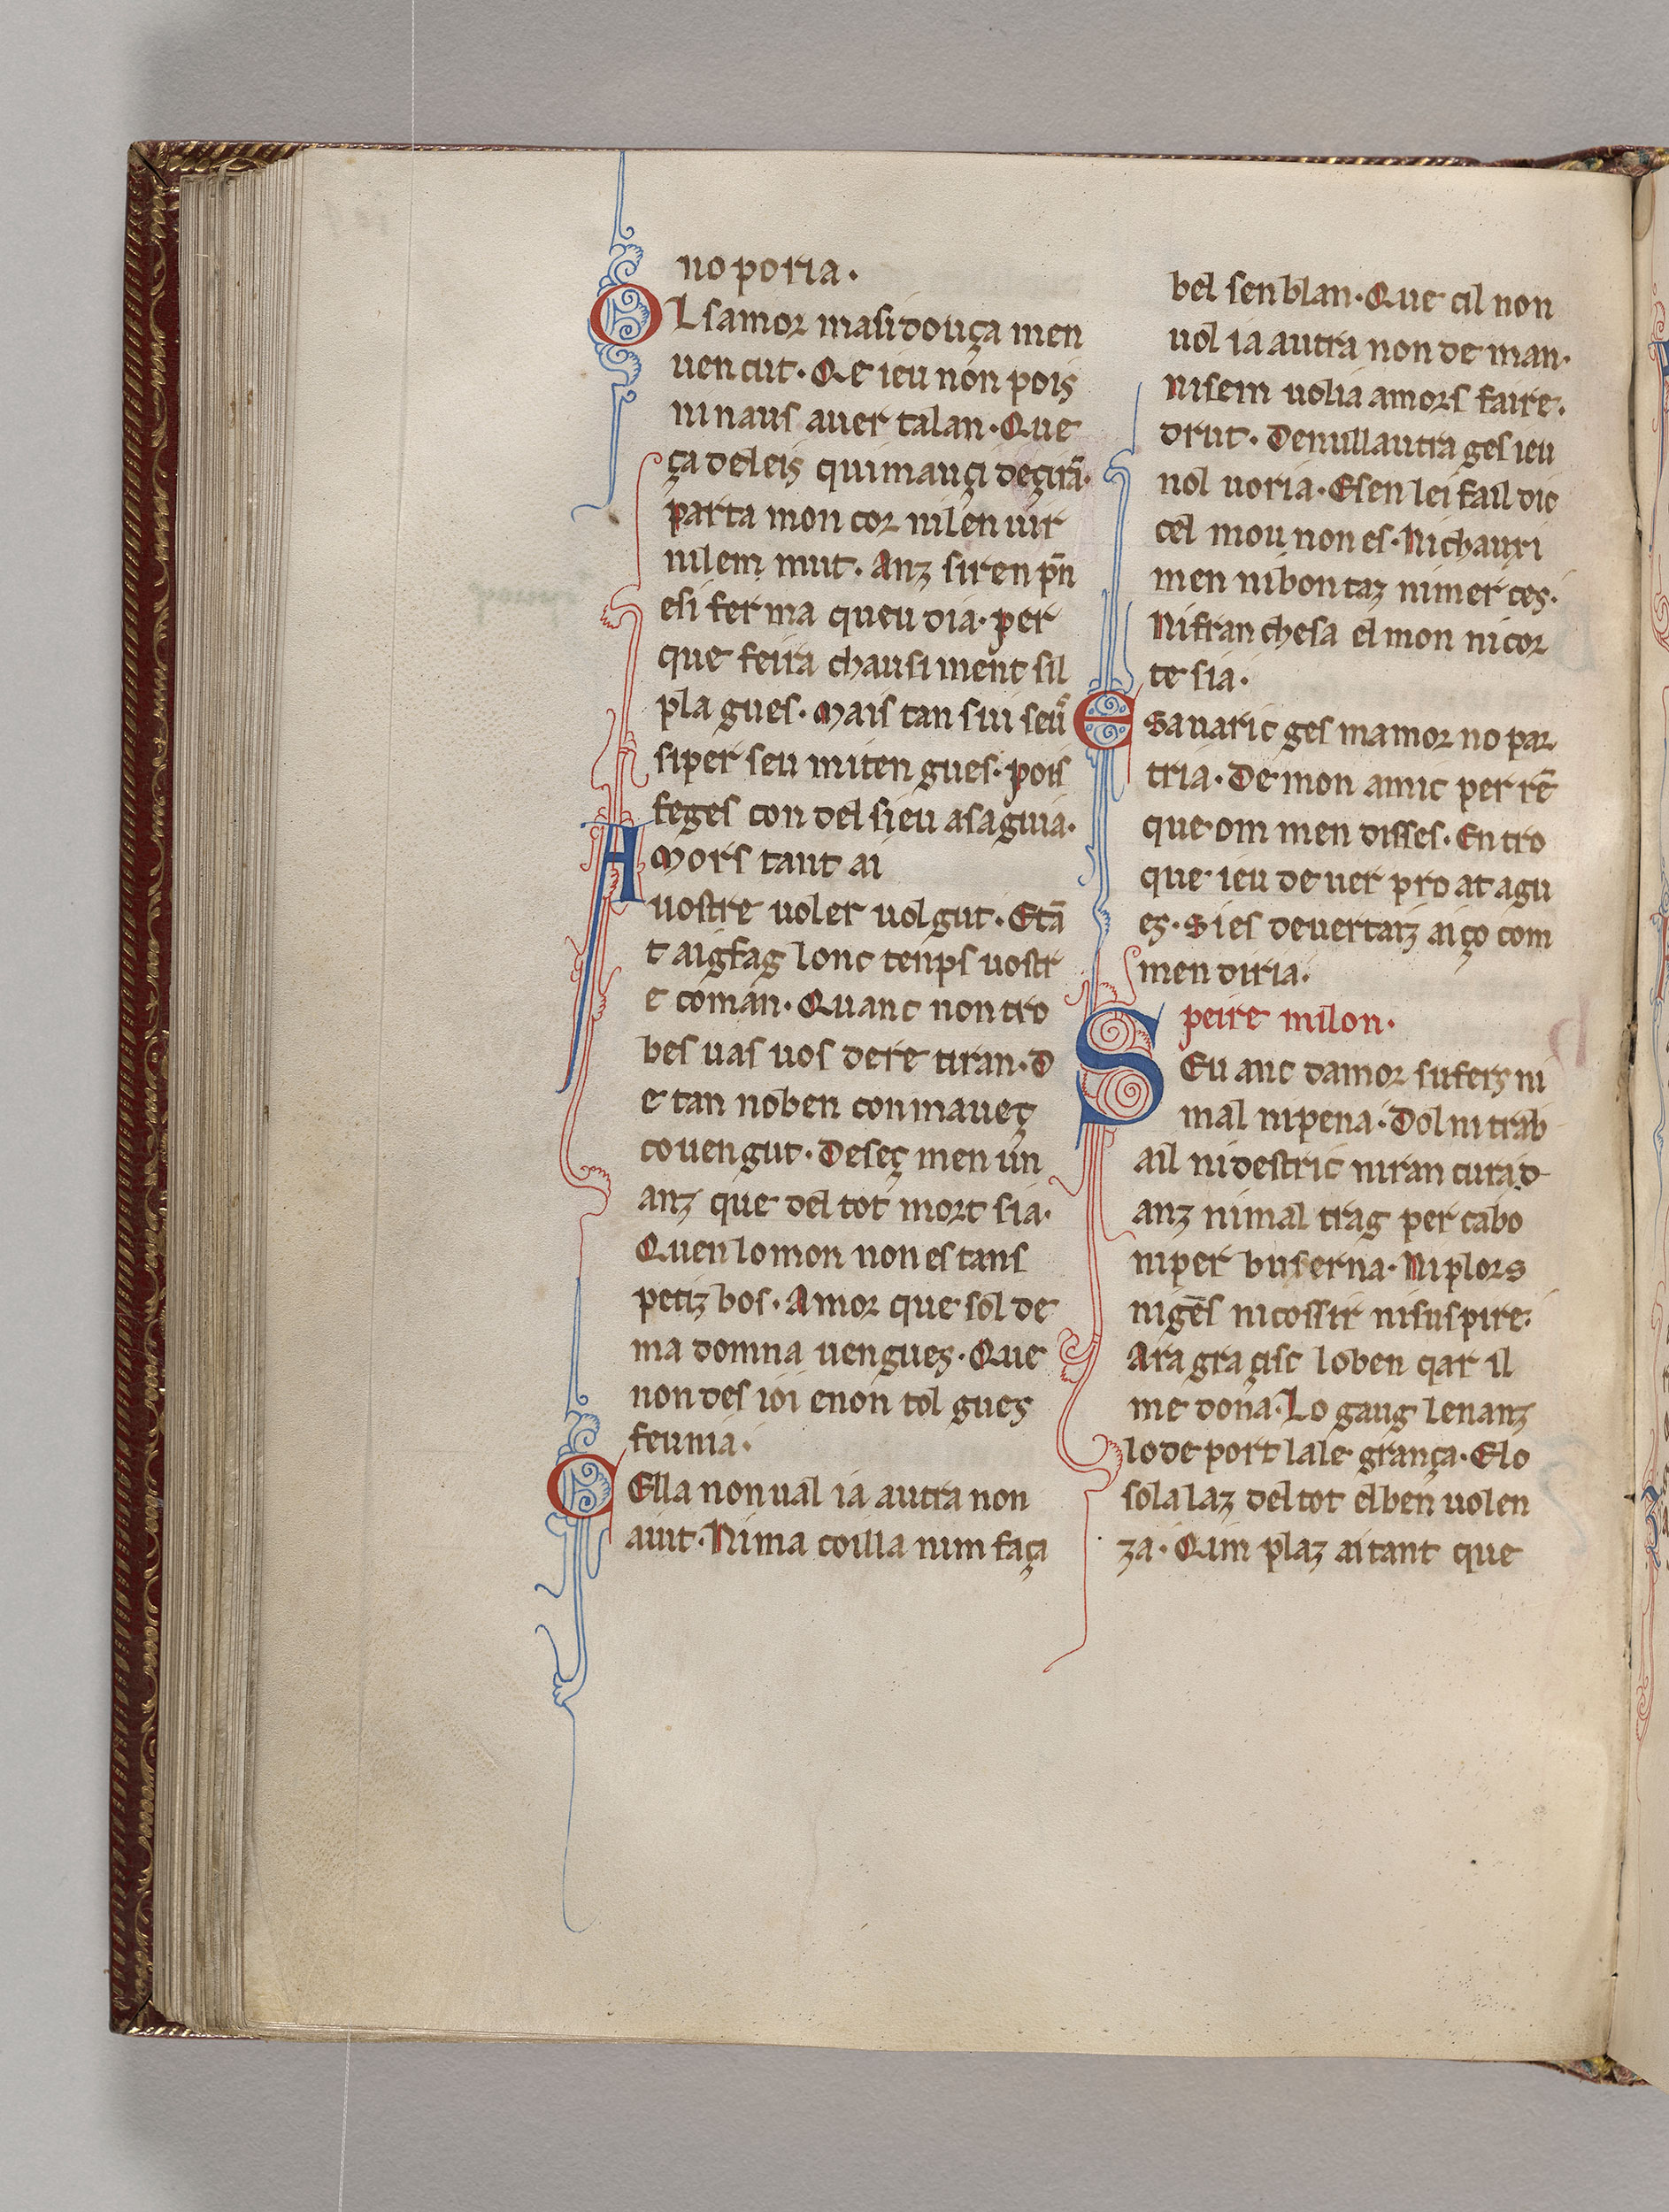 no poria.
OL samor masi douça men
uencut. Qe ieu non pois
ni naus auer talan. Que
ça deleis qui mauçi deçirã.
parta mon cor nilen uir
nilem mut. Anz siren pñ
esi ferma queu dia. per
que feira chausiment sil
pla gues. Mais tan sui seu
si per seu mi ten gues. pois
feges con del sieu asaguia.
AMors tant ai
uostre uoler uolgut. Etã
t aigfag lonc tenps uostr
e coman. Quanc non tro
bes uas uos de re tiran. D
e tan noben con maueç
couengut. Deseç men un
anz que del tot mort sia.
Quen lo mon non es tans
petiz bos. Amor que sol de
ma domna uengues. Que
non des ioi enon tol gues
feunia.
CElla non ual ia autra non
aiut. Ni ma coilla nim faça
bel senblan. Que cil non
uol ia autra non deman.
nisem uolia amors faire.
drut. De null autra ges ieu
nol uoria. E sen lei fail dic
cel mou non es. Ni chauzi
men nibontaz nimer ces.
Ni fran chesa el mon ni cor
te sia.
ESauaric ges mamor no par
tria. De mon amic per rẽ
que om men disses. En tro
que ieu de uer proat agu
es. Si es deuertaiz aiço com
men diria.
peire milon.
SEu anc damor sufers ni
mal ni pena. Dol ni trab
ail ni destric ni ran cura d
anz nimal trag per cabo
niper buferna. Ni plors
nigẽs nicossir nisuspire.
Ara gra çisc loben qar il
me dona. Lo gaug lenanz
lode port lale grança. Elo
sola laz del tot elben uolen
za. Qim plaz aitant que